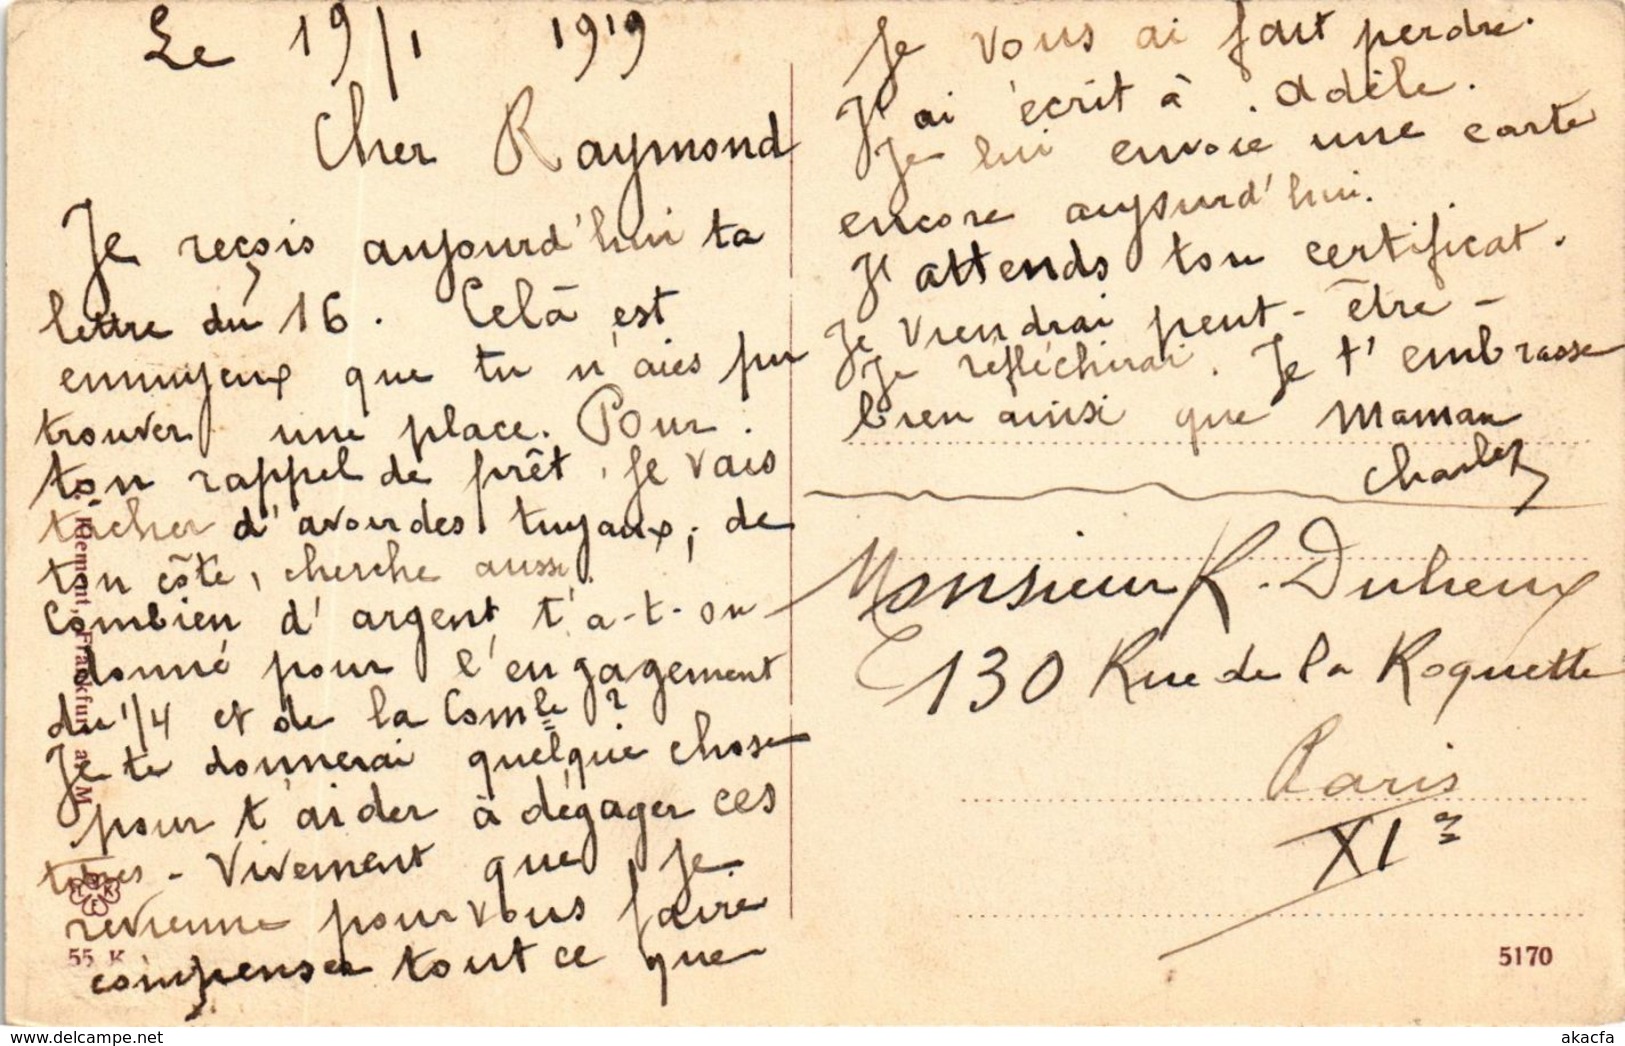 Le 19/1 1919
Cher Raymond
Je reçois aujourd'hui ta
lettre du 16. Celà est
ennuyeux que tu n'aies pu
trouver une place. Pour
ton rappel de prêt, je vais
tâcher d'avoir des tuyaux; de
ton côté, cherche aussi.
Combien d'argent t'a-t-on
donné pour l'engagement
du 1/4 et de la Comle ?
Je te donnerai quelque chose
pour t'aider à dégager ces
titres - Vivement que je
revienne pour vous faire
compenser tout ce que
Je vous ai fait perdre.
J'ai écrit à Adèle.
Je lui envoie une carte
encore aujourd'hui.
J'attends ton certificat.
Je viendrai peut-être -
Je réfléchirai. Je t'embrasse
bien ainsi que Maman
Charles
Monsieur R. Duheux
130 Rue de la Roquette
Paris
XIe
Klement, Frankfurt a. M.
55 K
5170
delcampe.net
akacfa